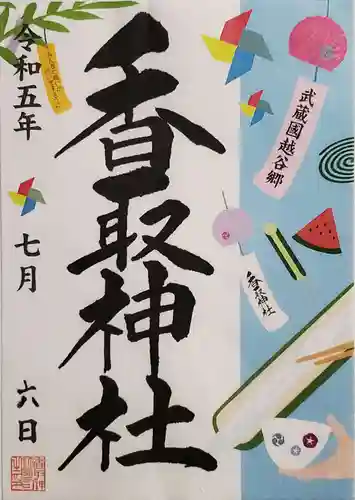 武蔵國越谷郷
香取神社
香取神社
令和五年
七月
六日